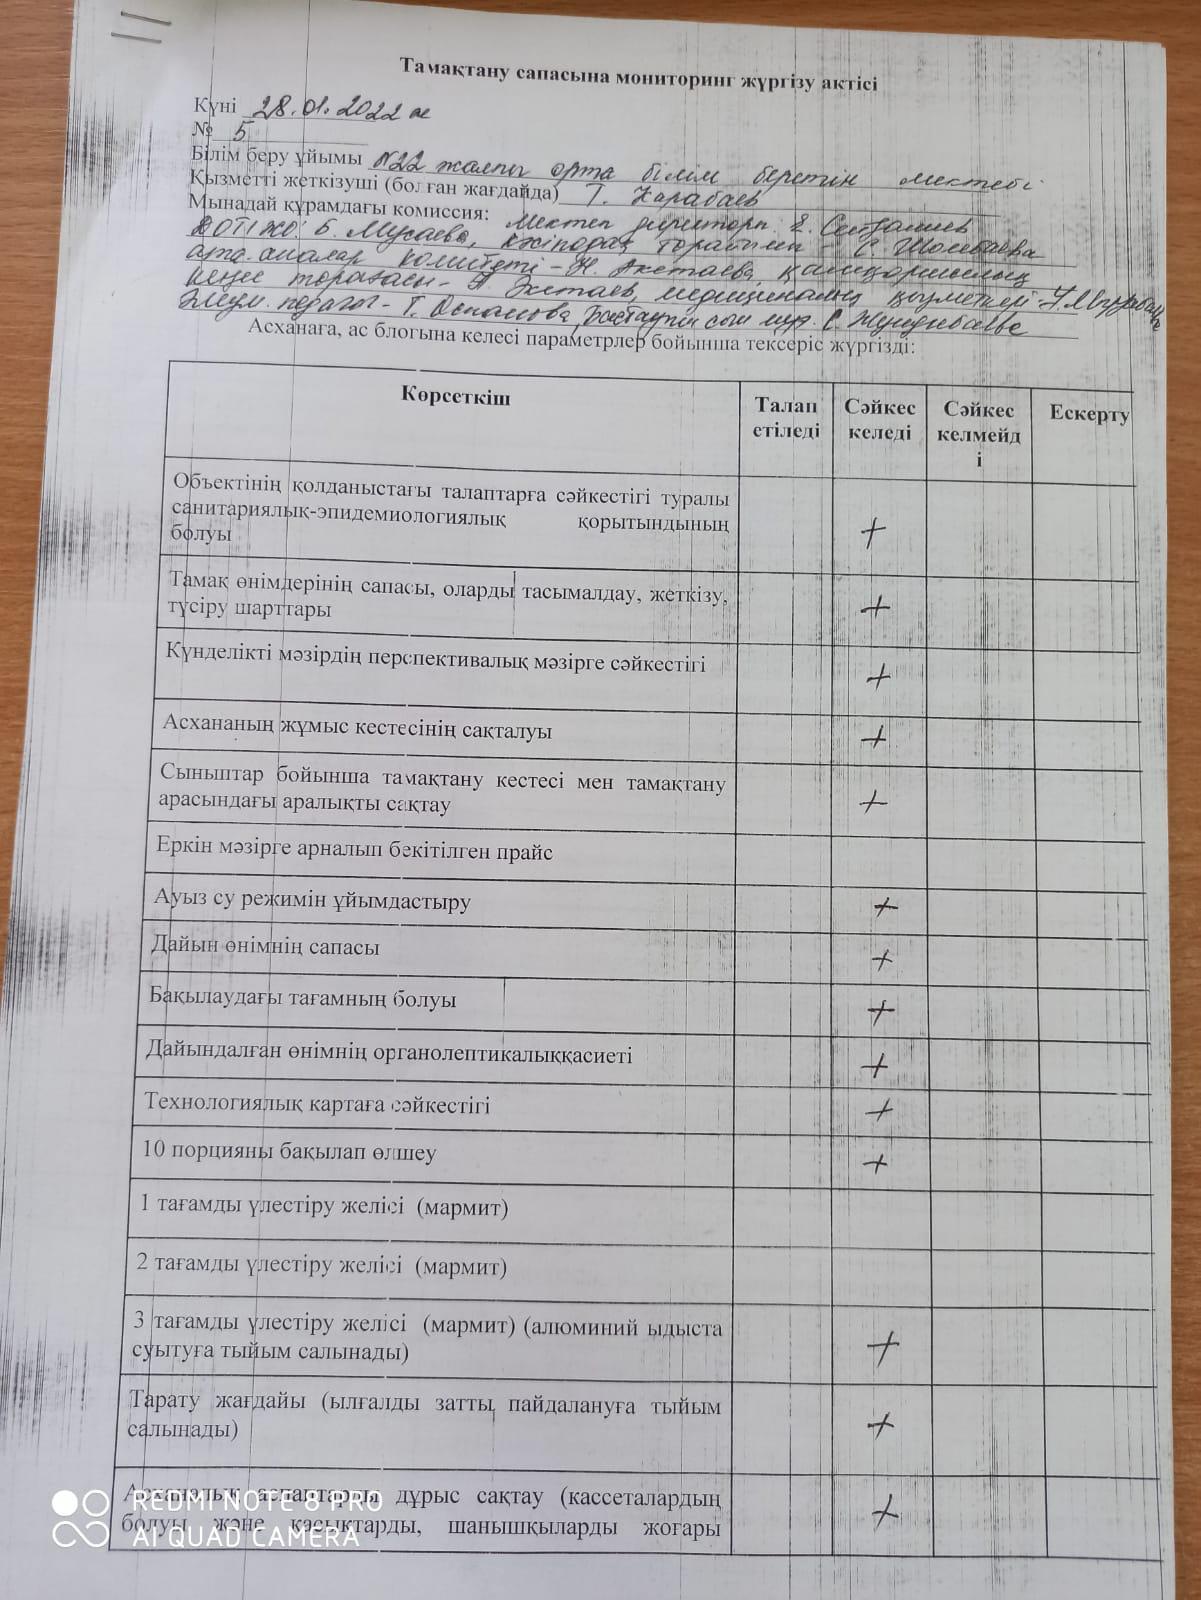 Тамақтану сапасына мониторинг жүргізу актісі
Күні 28.01.2022 ж
№ 5
Білім беру ұйымы №22 жалпы орта білім беретін мектебі
Қызметті жеткізуші (болған жағдайда) Т. Карабаев
Мынадай құрамдағы комиссия: Мектеп директоры
ДОТІЖО Б. Мусаева, кәсіподақ төрайымы - С. Шолебаева
ата-аналар комитеті - Н. Акетаева, қамқоршылық
кеңес төрағасы - медициналық қызметкері -
Әлеум. педагог - Т. Оспанова, бастауыш сын мұғ. С.
Асханаға, ас блогына келесі параметрлер бойынша тексеріс жүргізді:
Көрсеткіш Талап етіледі Сәйкес келеді Сәйкес келмейді Ескерту
Объектінің қолданыстағы талаптарға сәйкестігі туралы
санитариялық-эпидемиологиялық қорытындының
болуы +
Тамақ өнімдерінің сапасы, оларды тасымалдау, жеткізу,
түсіру шарттары +
Күнделікті мәзірдің перспективалық мәзірге сәйкестігі +
Асхананың жұмыс кестесінің сақталуы +
Сыныптар бойынша тамақтану кестесі мен тамақтану
арасындағы аралықты сақтау +
Еркін мәзірге арналып бекітілген прайс
Ауыз су режимін ұйымдастыру +
Дайын өнімнің сапасы +
Бақылаудағы тағамның болуы +
Дайындалған өнімнің органолептикалыққасиеті +
Технологиялық картаға сәйкестігі +
10 порцияны бақылап өлшеу +
1 тағамды үлестіру желісі (мармит)
2 тағамды үлестіру желісі (мармит)
3 тағамды үлестіру желісі (мармит) (алюминий ыдыста
суытуға тыйым салынады) +
Тарату жағдайы (ылғалды затты пайдалануға тыйым
салынады) +
Асханалық аспаптарды дұрыс сақтау (кассеталардың
болуы және қасықтарды, шанышқыларды жоғары +
REDMI NOTE 8 PRO
AI QUAD CAMERA